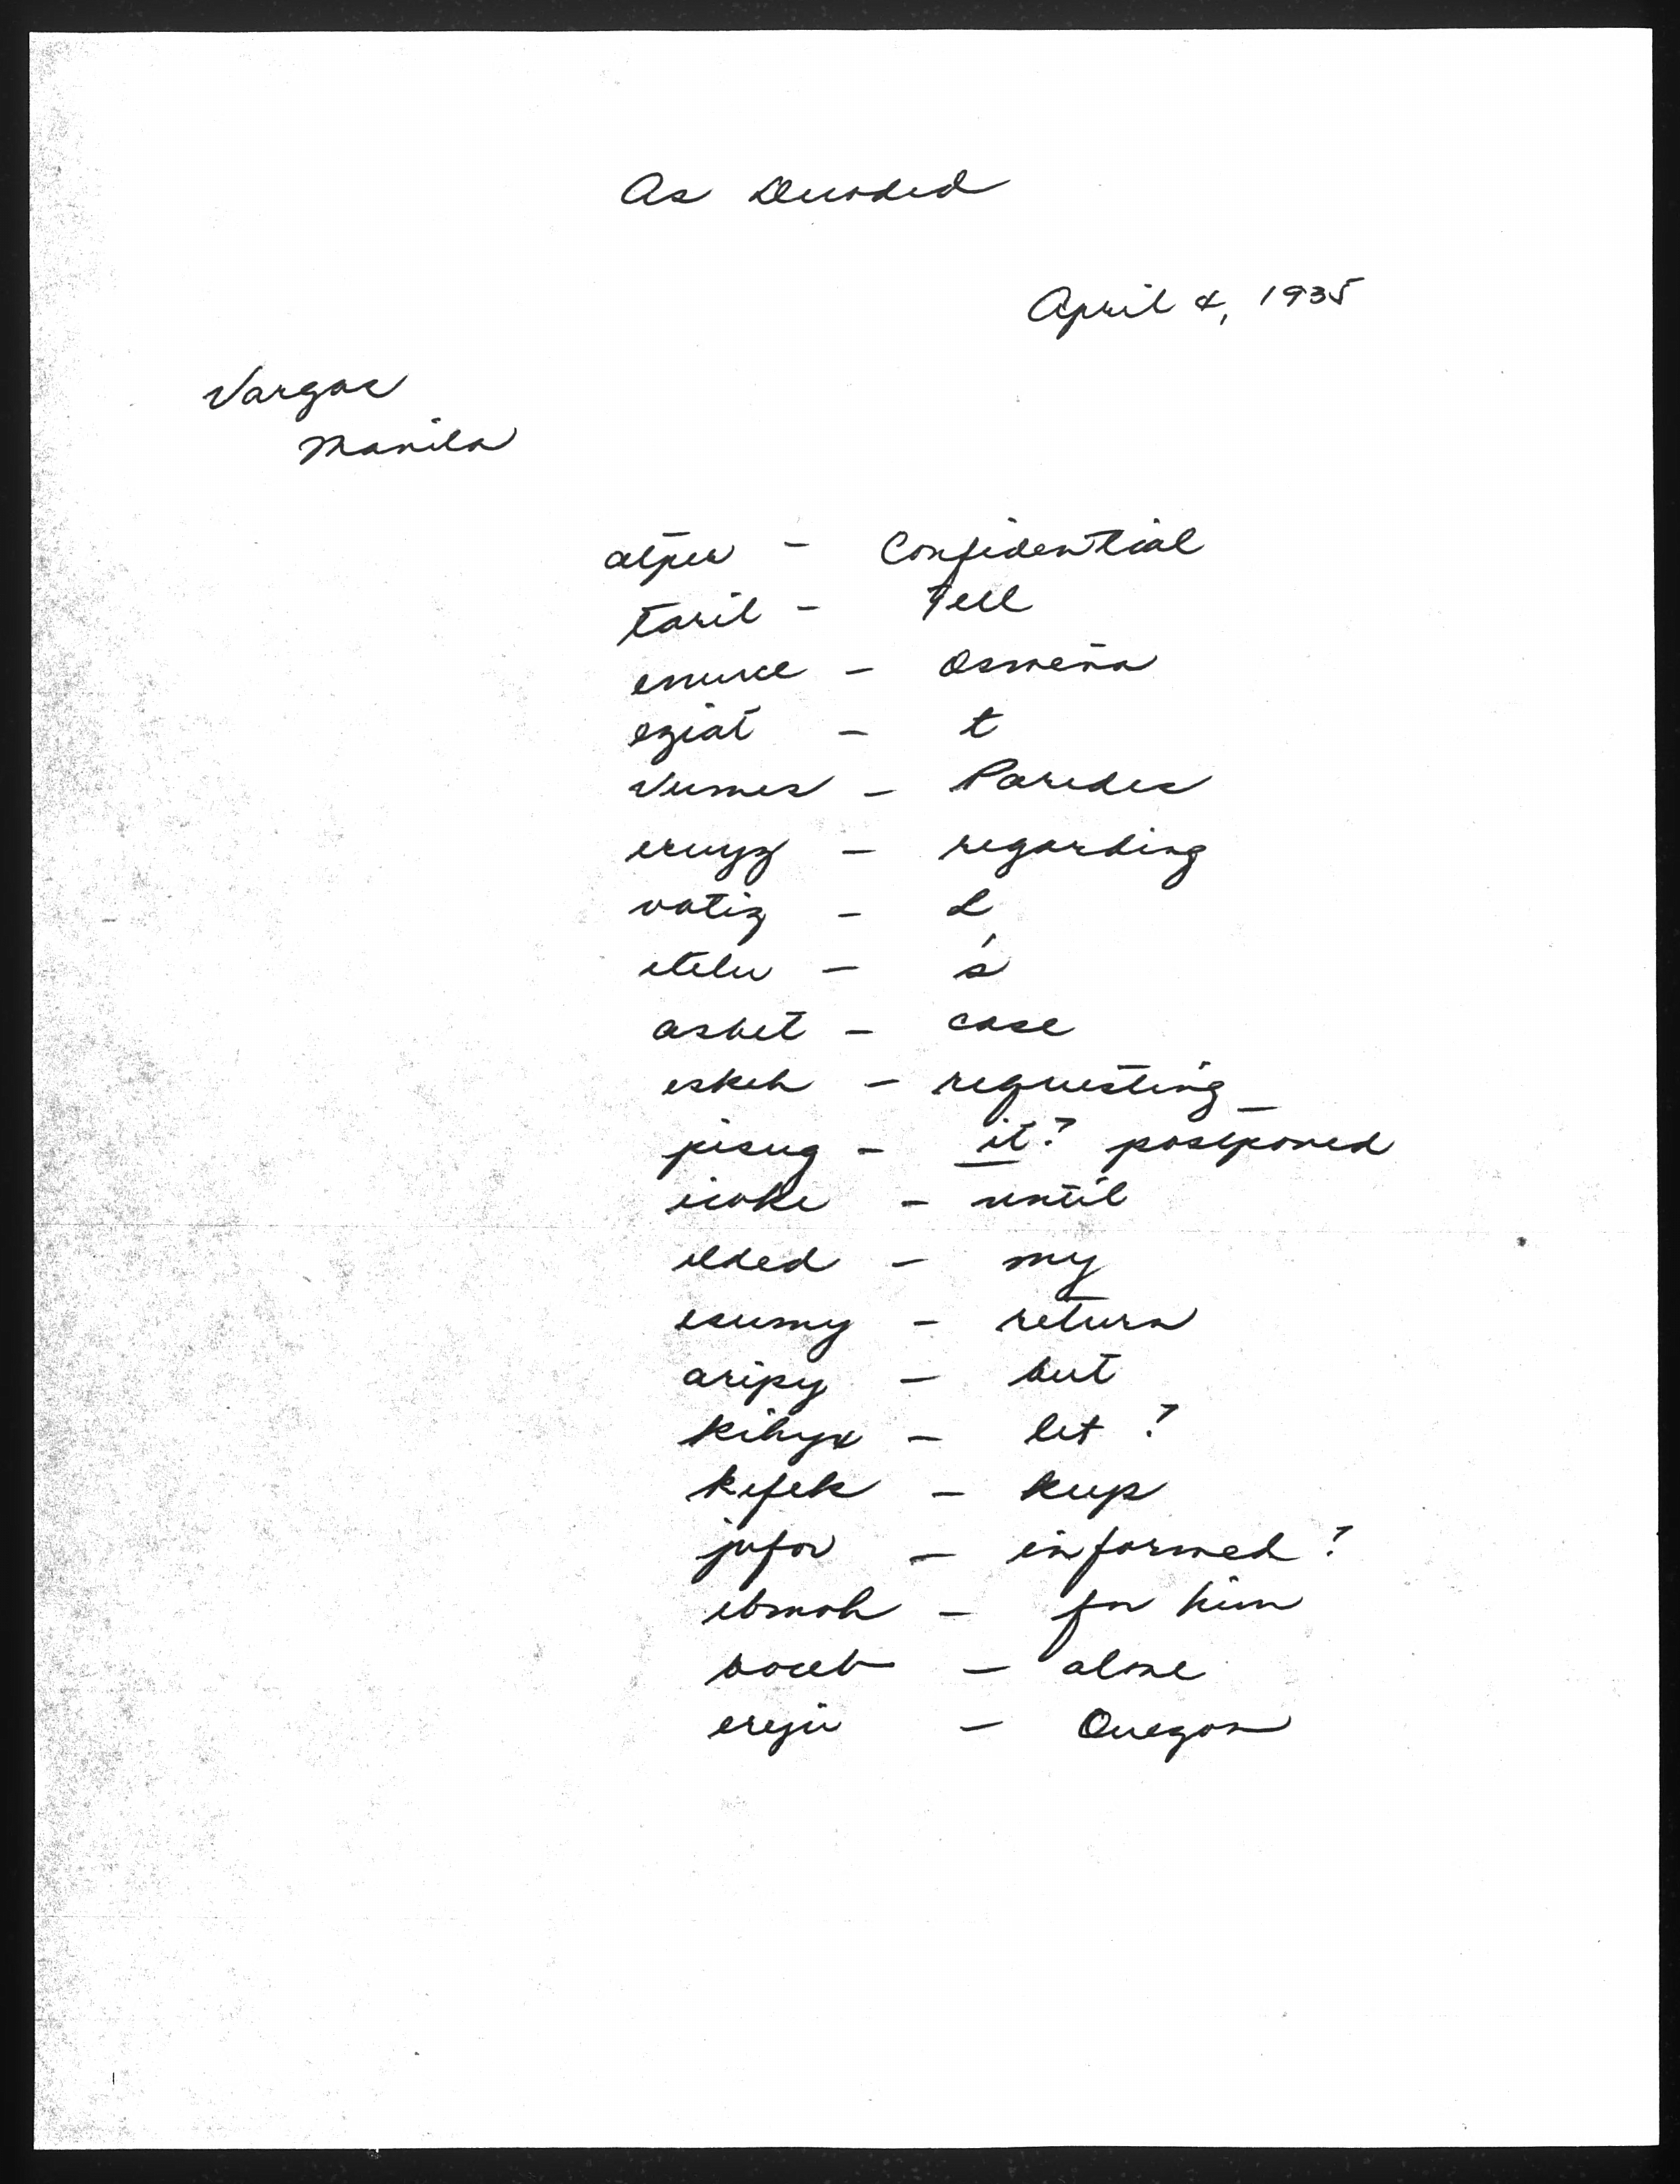 As Decoded
April 4, 1935
Vargas
Manila
atpew - Confidential
taril - Tell
enuce - Osmeña
eziat - t
vumes - Paredes
eruyz - regarding
vatiz - L
itelu - 's
asbet - case
eskeh - requesting
pisug - it? postponed
icoke - until
ilded - my
esumy - return
aripy - but
kihyx - let ?
kifek - keep
jofov - informed ?
ibmoh - for him
boceb - alone
ereju - Quezon